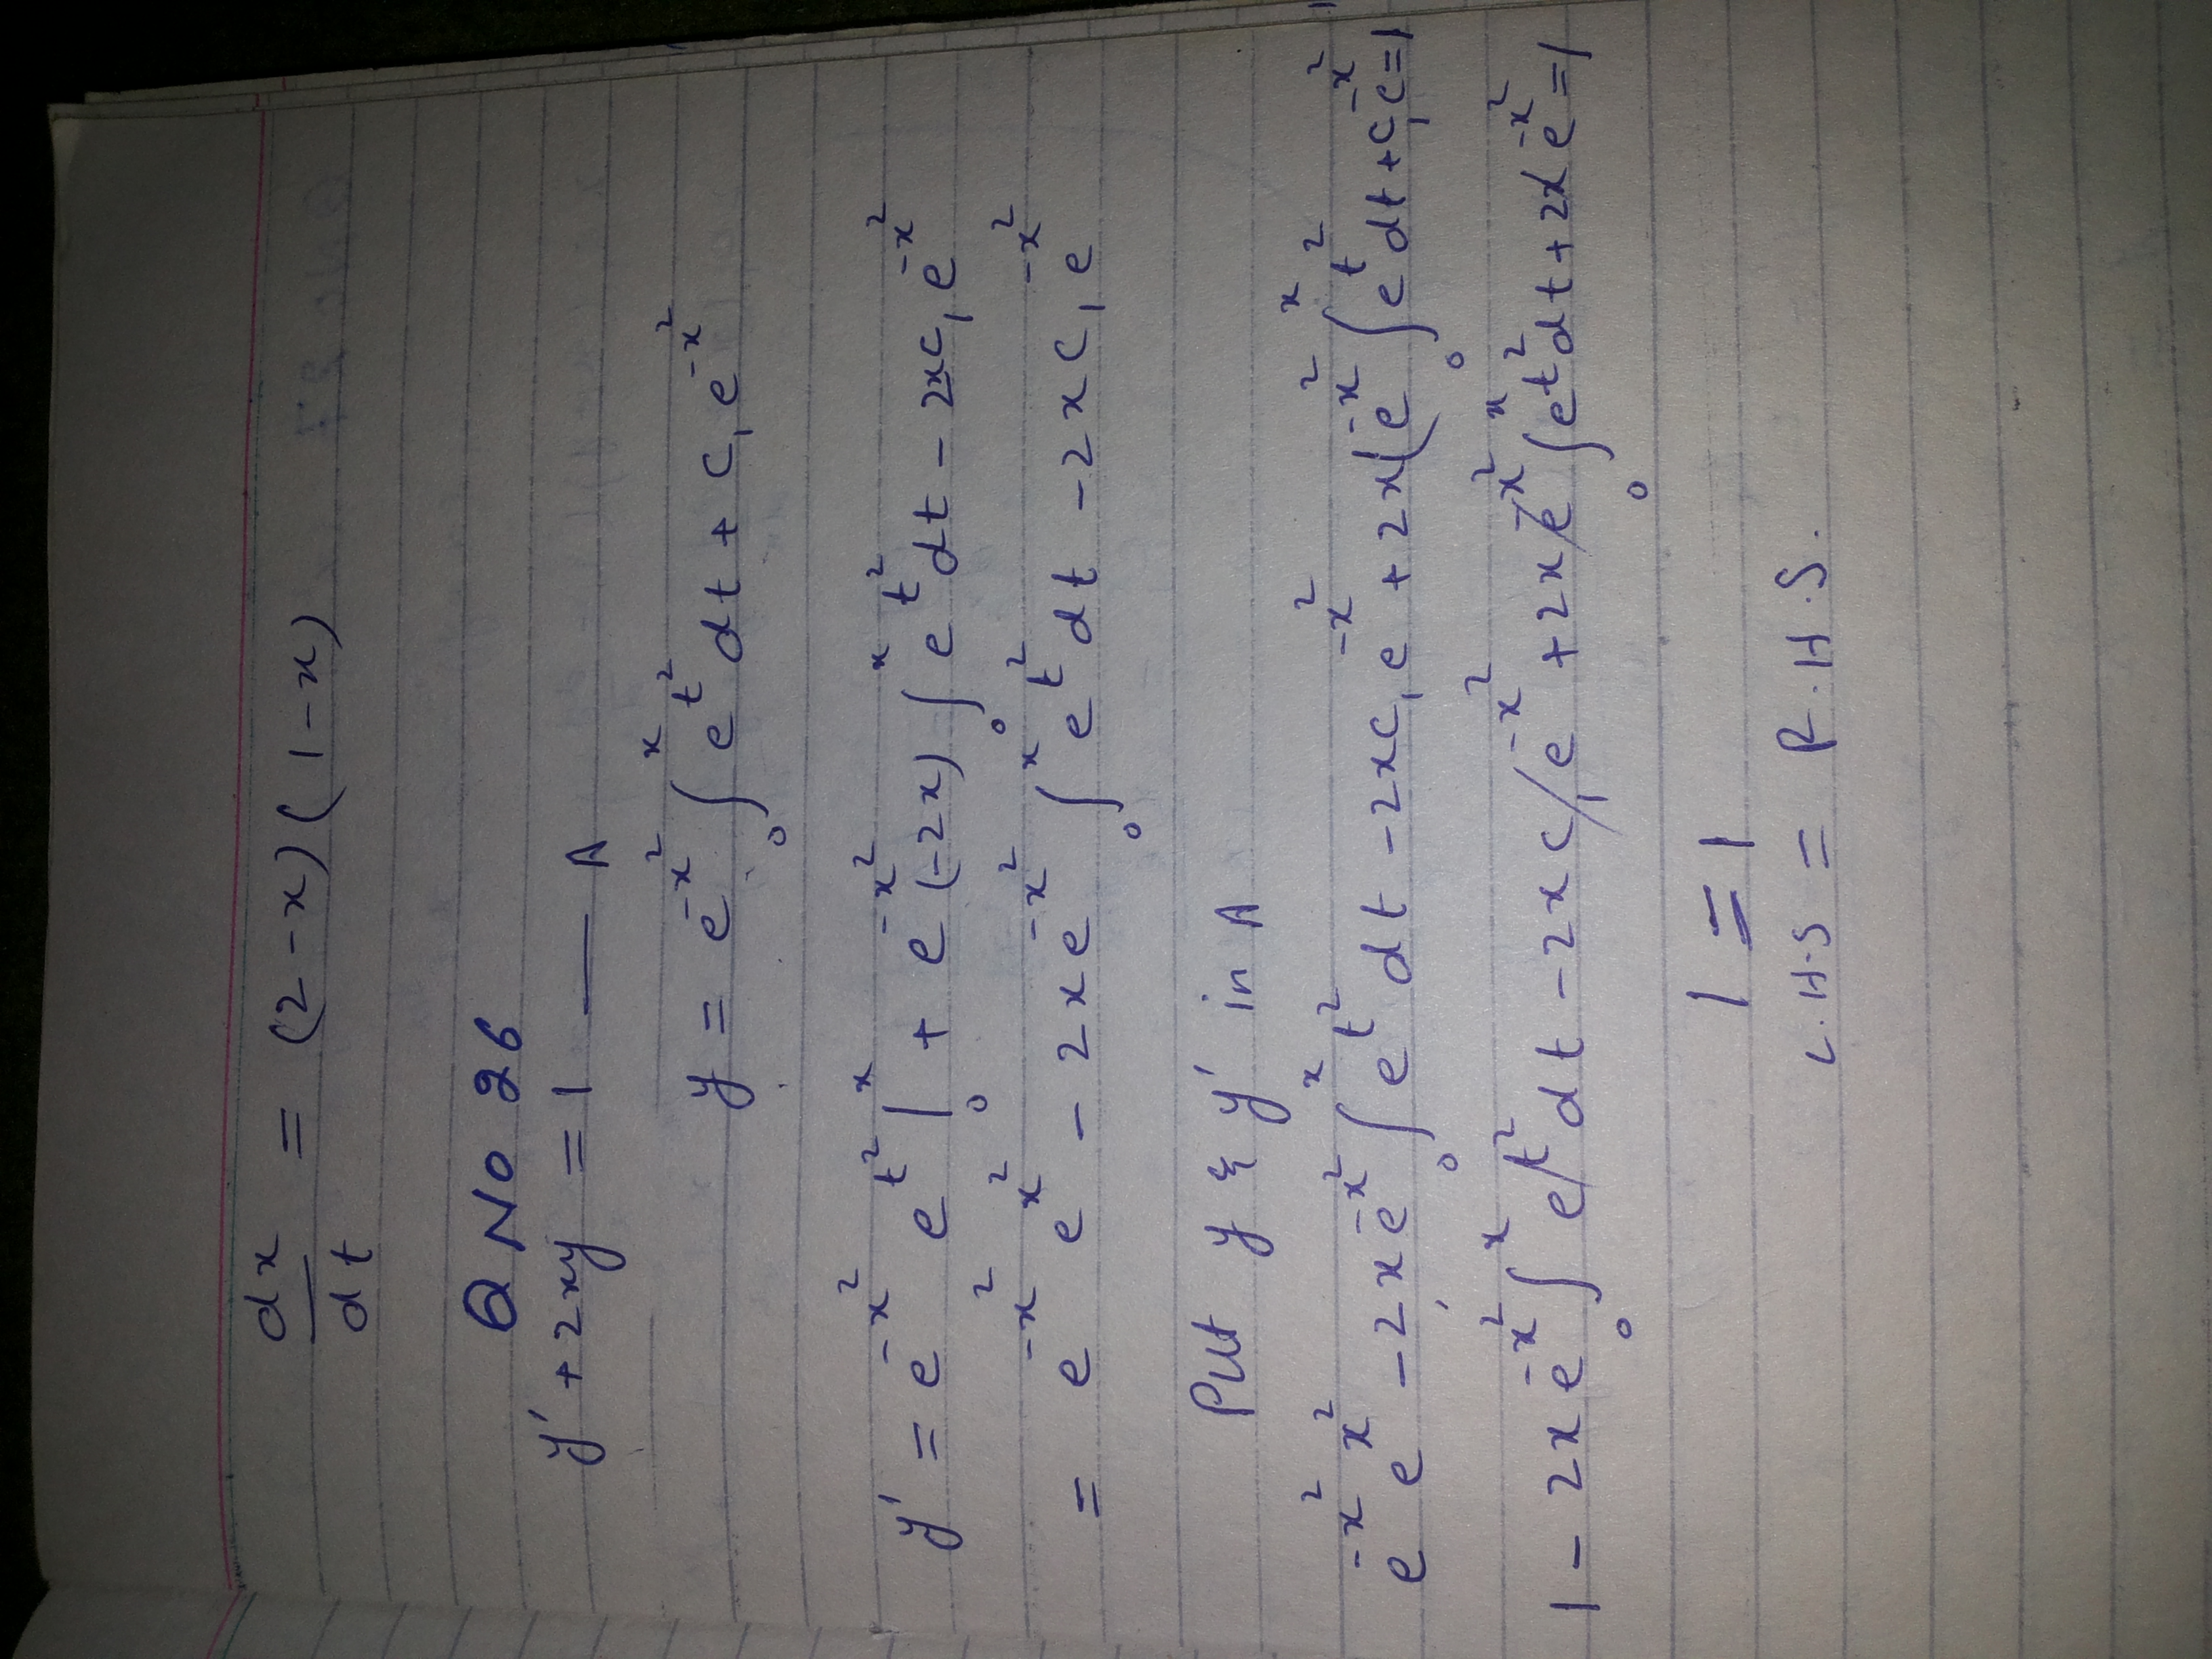 dx/dt = (2-x)(1-x)
Q No 26
y' + 2xy = 1 — A
y = e^{-x^2} ∫_0^x e^{t^2} dt + c_1 e^{-x^2}
y' = e^{-x^2} e^{t^2} |_0^x + e^{-x^2} (-2x) ∫_0^x e^{t^2} dt - 2xc_1 e^{-x^2}
= e^{-x^2} e^{x^2} - 2xe^{-x^2} ∫_0^x e^{t^2} dt - 2xc_1 e^{-x^2}
Put y & y' in A
e^{-x^2} e^{x^2} - 2xe^{-x^2} ∫_0^x e^{t^2} dt - 2xc_1 e^{-x^2} + 2x(e^{-x^2} ∫_0^x e^{t^2} dt + c_1 e^{-x^2} = 1
1 - 2xe^{-x^2} ∫_0^x e^{t^2} dt - 2xc_1 e^{-x^2} + 2xe^{-x^2} ∫_0^x e^{t^2} dt + 2x e^{-x^2} = 1
1 = 1
L.H.S = R.H.S.